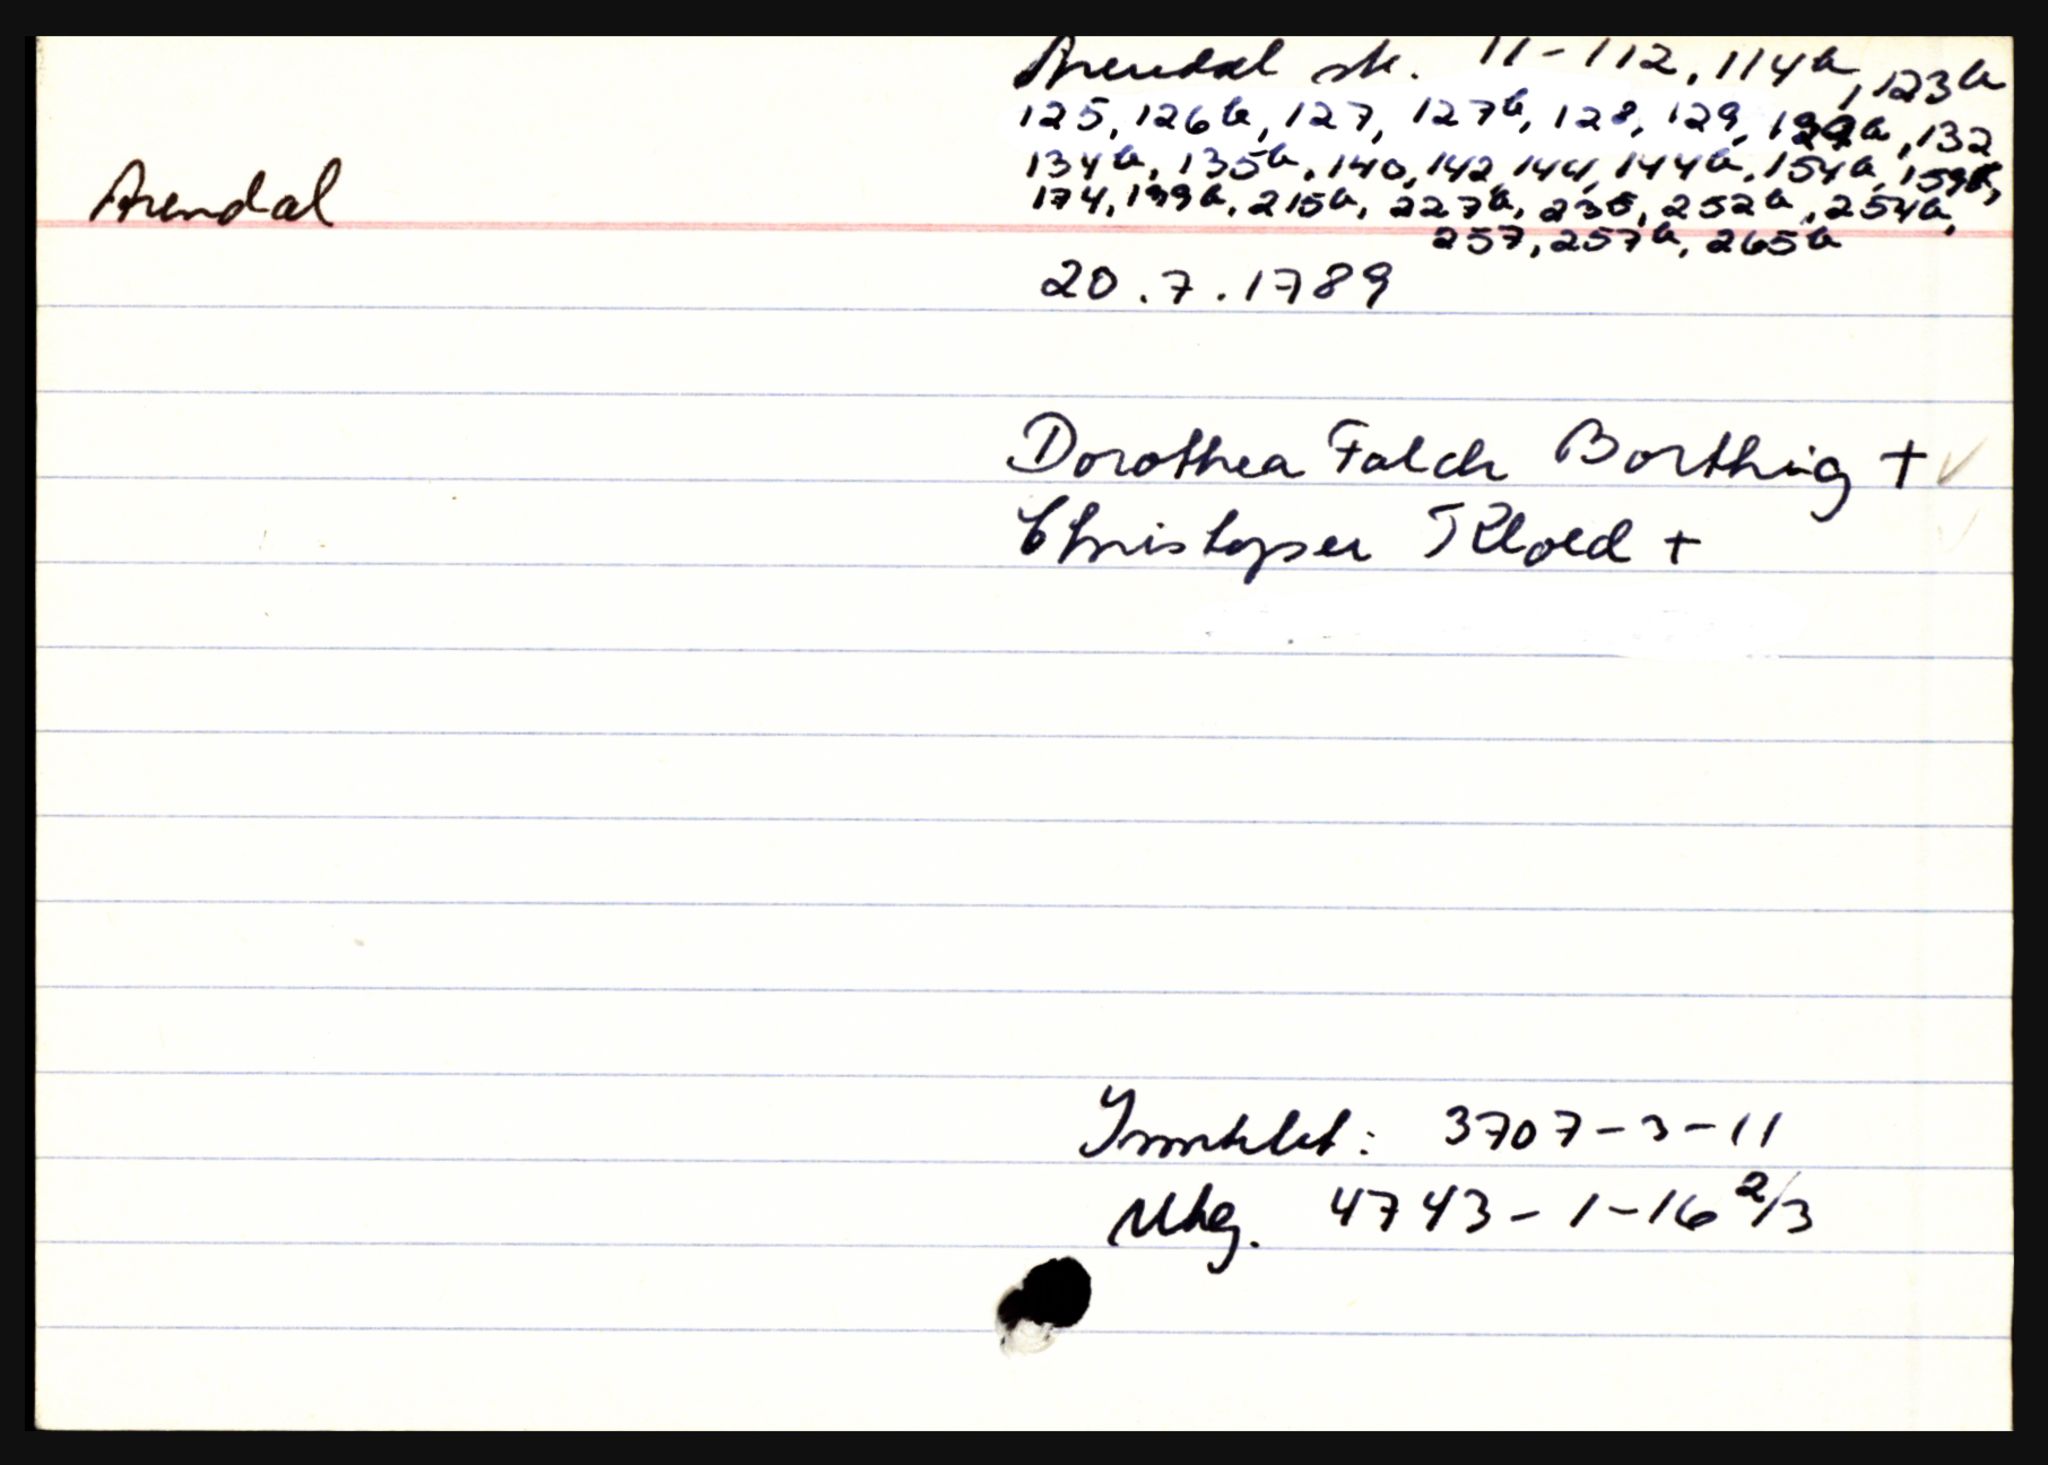 Arendal sk. 11-112, 114b, 123b
125, 126b, 127, 127b, 128, 129, 129b, 132
134b, 135b, 140, 142, 144, 144b, 154b, 159b,
Arendal
174, 199b, 215b, 227b, 235, 252b, 254b,
257, 257b, 265b
20.7.1789
Dorothea Falch Borthig +
Christopser Kloed +
Inntekt: 3707-3-11
Utg. 4743-1-16 2/3